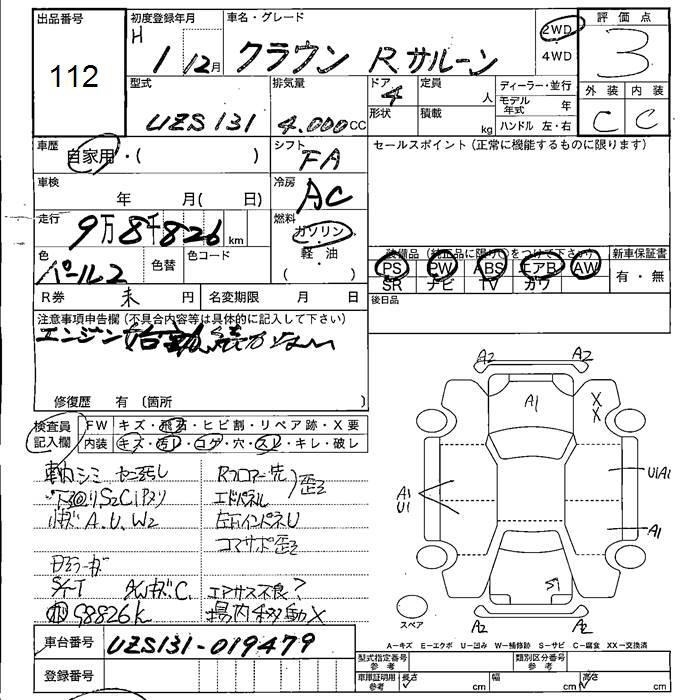 出品番号
112
初度登録年月
H 1 12月
車名・グレード
クラウン Rサルーン
2WD
・
4WD
評価点
3
外装 内装
C C
型式
UZS131
排気量
4.000CC
ドア
4
形状
定員
人
積載
kg
ディーラー・並行
モデル年式 年
ハンドル 左・右
車歴
自家用・( )
シフト
FA
セールスポイント(正常に機能するものに限ります)
車検
年 月( 日)
冷房
AC
走行
9万8千826km
燃料
ガソリン
・
軽・油
( )
色
パール2
色替
色コード
装備品(純正品に限り○をつけて下さい)
PS PW ABS エアB AW
SR ナビ TV カワ
新車保証書
有・無
R券 未 円
名変期限 月 日
後日品
注意事項申告欄(不具合内容等は具体的に記入して下さい)
エンジン始動、続かない
修復歴 有 〔箇所
検査員
記入欄
FW キズ・飛石・ヒビ割・リペア跡・X要
内装 キズ・汚レ・コゲ・穴・スレ・キレ・破レ
小キズ A.U.W2
Rフロアー先
エドパネル
歪
左右インパネU
コマサポ歪
エアサス不良?
場内移動X
98826k
A2 A2
A1
X
X
A1
U1
U1A1
A1
S1
A2 A2
スペア
A=キズ E=エクボ U=凹み W=補修跡 S=サビ C=腐食 XX=交換済
車台番号
UZS131-019479
登録番号
型式指定番号
参考
類別区分番号
参考
車庫証明用
参考
長さ cm 幅 cm 高さ cm